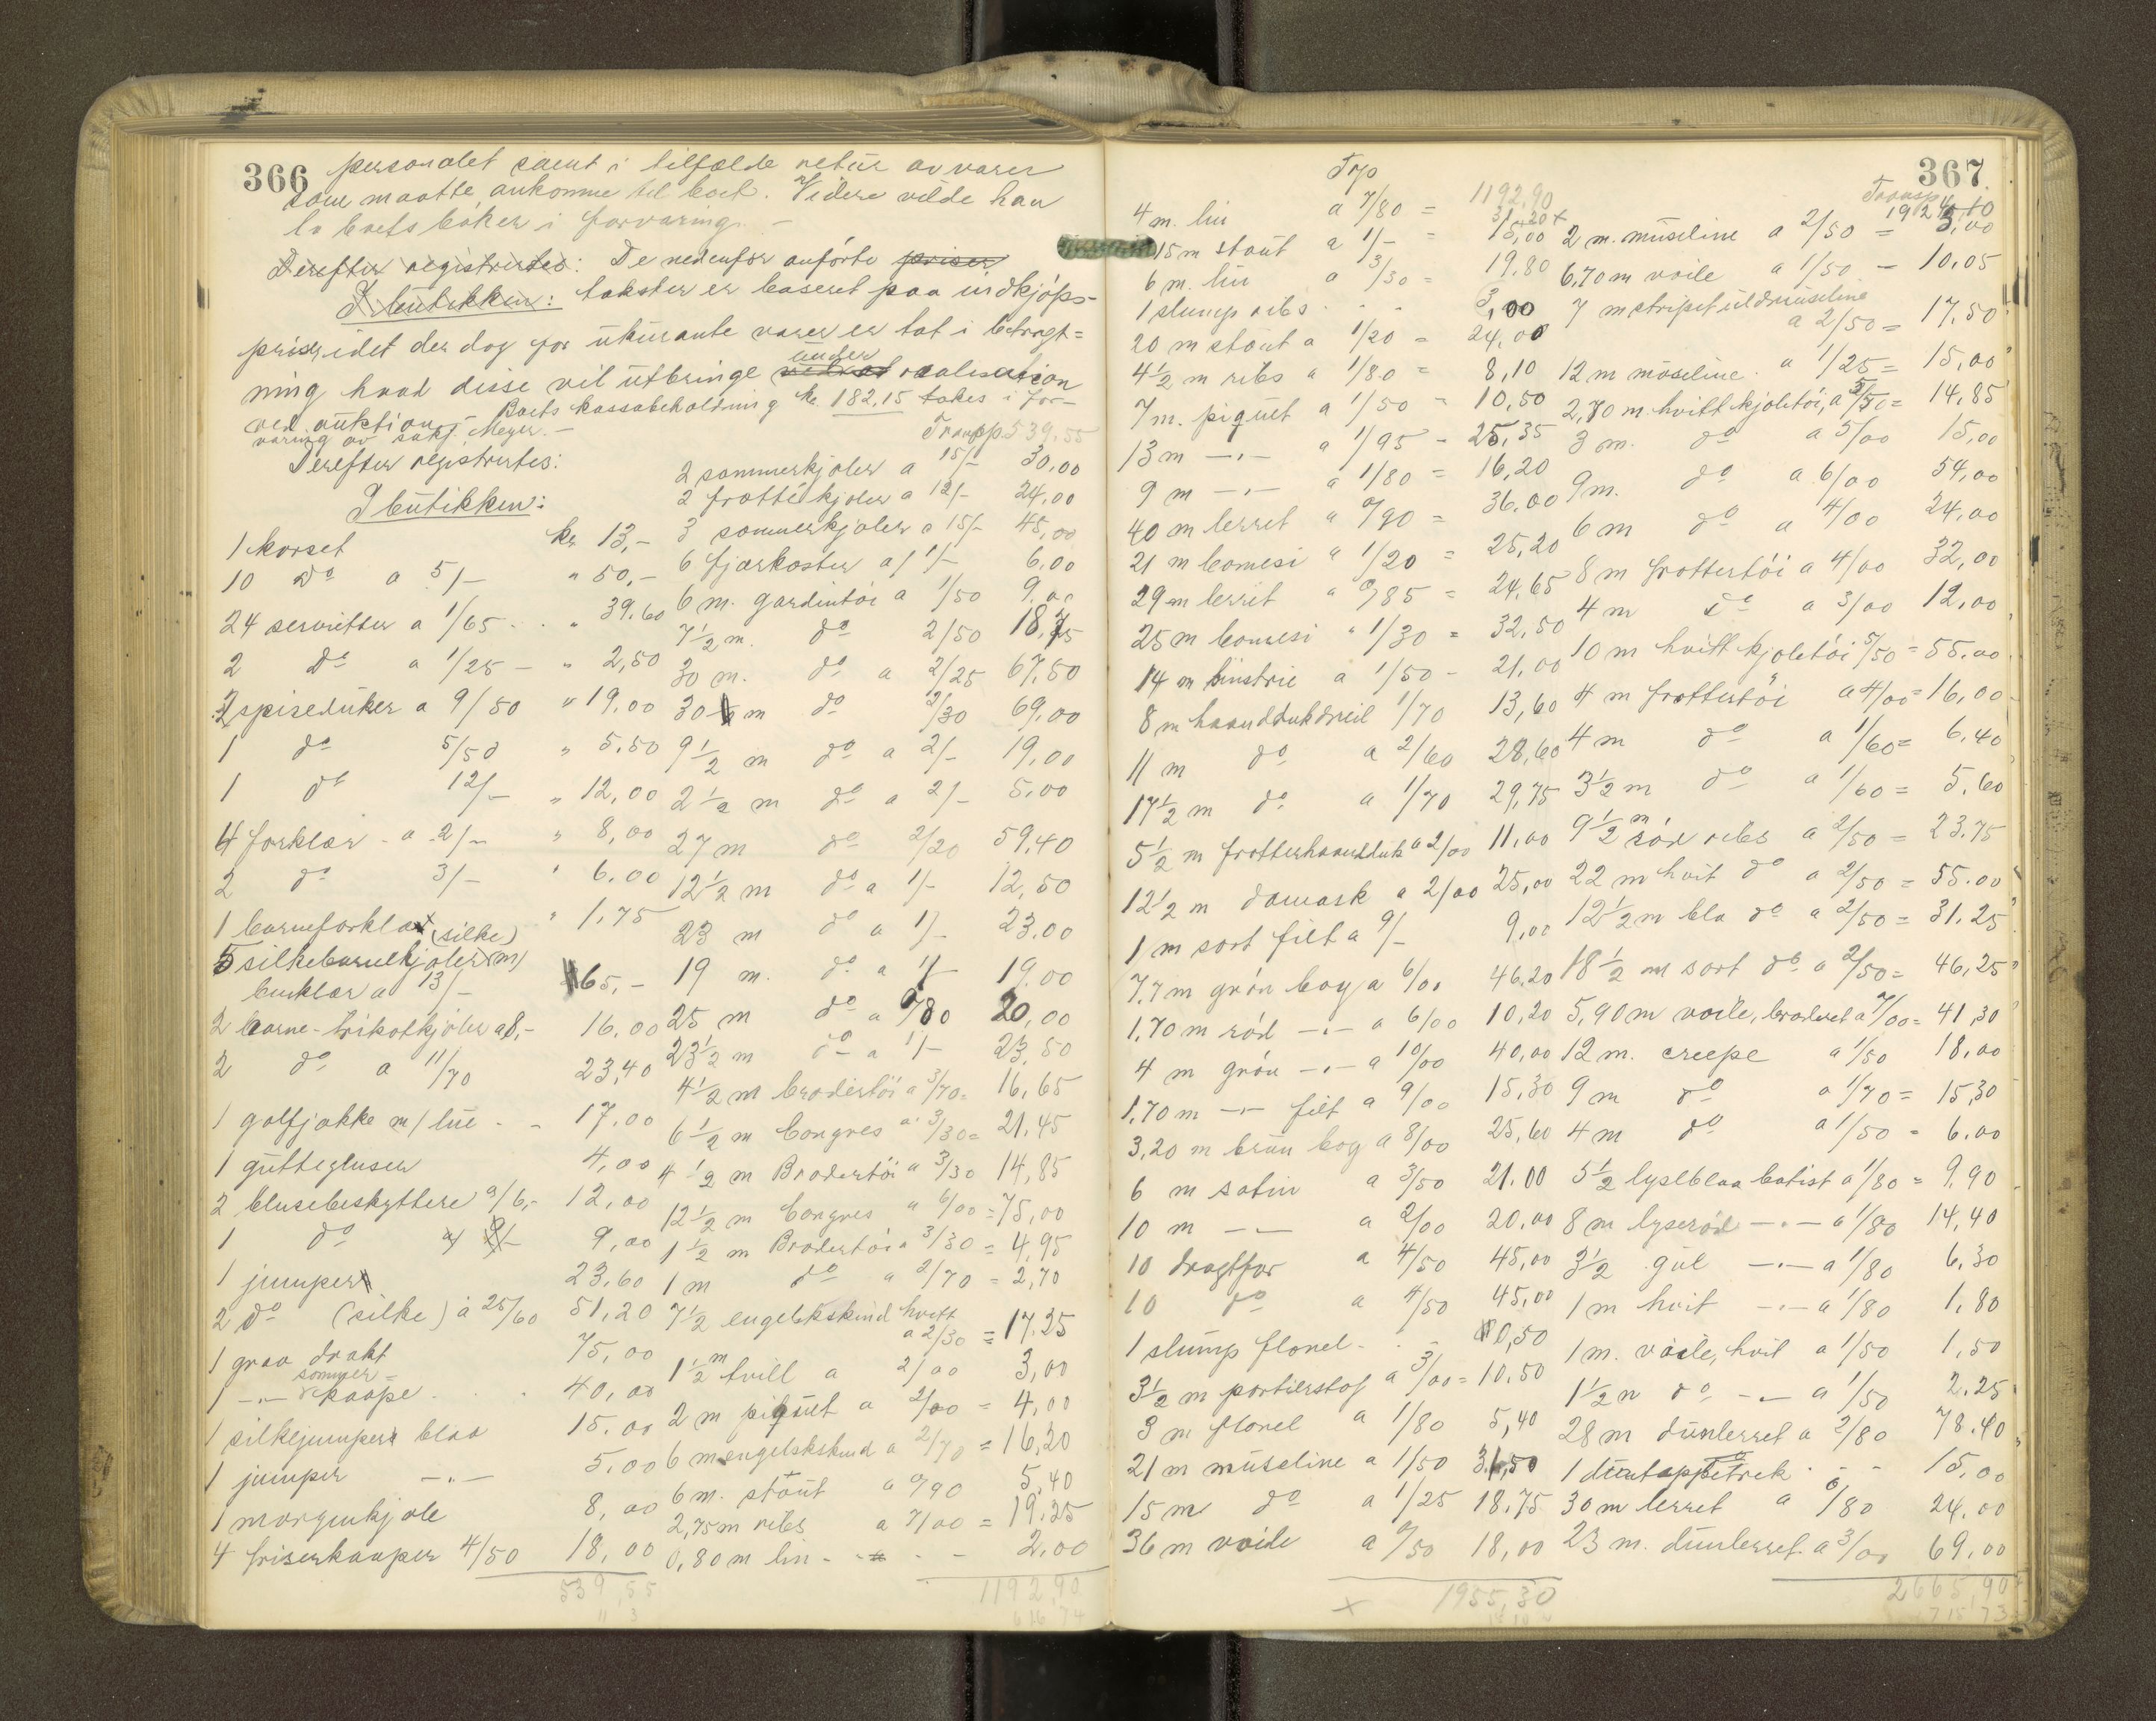 366
personalet samt i tilfælde retur av varer
som maatte ankomme til boet. Videre vilde han
ta boets bøker i forvaring. -
Derefter registrertes: De nedenfor anførte priser
I butikken: takster er baseret paa indkjøps-
priser idet der dog for ukurante varer er tat i betragt=
ning hvad disse vil utbringe ved at under realisation
ved auktion. - Boets kassabeholdning kr. 182,15 takes i for-
varing av sakf. Meyer. -
Derefter registrertes:
I butikken:
1 korset kr 13,-
10 do a 5/- " 50,-
24 servietter a 1/65 - . " 39.60
2 do a 1/25 - " 2,50
2 spiseduker a 9/50 " 19,00
1 do 5/50 " 5.50
1 do 12/- " 12,00
4 forklær - a 2/- " 8,00
2 do 3/- " 6.00
1 barneforklæ (silke) " 1,75
5 silkebarnekjoler (m/
benklær a 13/- 65,-
2 barne-trikotkjoler a 8,- 16.00
2 do a 11/70 23,40
1 golfjakke m/ lue - - 17.00
1 guttegenser 4,00
2 blusebeskyttere a/6,- 12,00
1 do a/ 9/- 9,00
1 jumper 23.60
2 do (silke) à 25/60 51,20
1 graa drakt 75,00
1 -"- sommer=kaape . . . 40,00
1 silkejumper blaa 15.00
1 jumper -"- 5.00
1 morgenkjole 8,00
4 friserkaaper 4/50 18,00
539,55
Transp. 539.55
2 sommerkjoler a 15/- 30,00
2 frottékjoler a 12/- 24,00
3 sommerkjoler a 15/- 45,00
6 fjærkoster a/ 1/- 6.00
6 m. gardintøi a 1/50 9.00
7½ m. do 2/50 18,75
30 m. do a 2/25 67,50
30 m do 2/30 69,00
9½ m do a 2/- 19,00
2½ m do a 2/- 5.00
27 m do 2/20 59,40
12½ m do a 1/- 12,50
23 m do a 1/- 23.00
19 m. do a 1/- 19.00
25 m do a 0/80 20,00
23½ m do a 1/- 23,50
4½ m brodertøi a 3/70= 16,65
6½ m Congres a 3/30= 21,45
4½ m Brodertøi a 3/30 14,85
12½ m Congres a 6/00 = 75,00
1½ m Brodertøi a 3/30 = 4,95
1 m do a 2/70 = 2,70
7½ engelskskind hvitt
a 2/30 = 17.25
1½ m tvill a 2/00 3,00
2 m piquet a 2/00 = 4,00
6 m engelskskind a 2/70 = 16,20
6 m. stout a 0/90 5,40
2,75 m ribs a 7/00 = 19.25
0,80 m lin - - - - 2,00
1192,90
367
Trp 1192,90
4 m. lin a 7/80 = 31,20 x
15 m stout a 1/- = 15,00
6 m. lin a 3/30 = 19,80
1 slump ribs - - 3,00
20 m stout a 1/20 = 24,00
4½ m ribs a 1/80 = 8,10
7 m. piquet a 1/50 = 10,50
13 m -"- a 1/95 - 25,35
9 m -"- a 1/80 = 16,20
40 m lerret a 0/90 = 36,00
21 m bomesi a 1/20 = 25,20
29 m lerret a 0/85 = 24,65
25 m bomesi " 1/30 = 32,50
14 m a 1/50 - 21,00
8 m haanddukdreil 1/70 13,60
11 m do a 2/60 28,60
17½ m do a 1/70 29,75
5½ m frotterhaandduk a 2/00 11,00
12½ m damask a 2/00 25,00
1 m sort filt a 9/- 9,00
7,7 m grøn boy a 6/00 46,20
1,70 m rød -"- a 6/00 10,20
4 m grøn -"- a 10/00 40,00
1,70 m -"- filt a 9/00 15,30
3,20 m brun boy a 8/00 25,60
6 m satin a 3/50 21.00
10 m -"- a 2/00 20,00
10 dragtfor a 4/50 45,00
10 do a 4/50 45,00
1 slump flonel - . - 0,50
3½ m portierstof a 3/00= 10,50
3 m flonel a 1/80 5,40
21 m museline a 1/50 31,50
15 m do a 1/25 18,75
36 m voile a 0/50 18,00
1955,30
Transp.
2 m. museline a 2/50 = 5,00
6,70 m voile a 1/50 - 10,05
7 m stripet uldmuseline
a 2/50 = 17,50
12 m museline a 1/25 = 15,00
2,70 m hvitt kjoletøi, a 5/50= 14,85
3 m. do a 5/00 15,00
9 m. do a 6/00 54,00
6 m do a 4/00 24,00
8 m frottertøi a 4/00 32,00
4 m do a 3/00 12,00
10 m hvitt kjoletøi 5/50 = 55.00
4 m frottertøi a 4/00 = 16,00
4 m do a 1/60= 6.40
3½ m do a 1/60 = 5.60
9½ m rød ribs a 2/50 = 23.75
22 m hvit do a 2/50 = 55.00
12½ m bla do a 2/50 = 31.25
18½ m sort do a 2/50= 46,25
5,90 m voile, broderet a 7/00= 41,30
12 m. creepe a 1/50 18,00
9 m do a 1/70 = 15,30
4 m do a 1/50 = 6.00
5½ lyseblaa batist a 1/80 = 9,90
8 m lyserød -"- a 1/80 14,40
3½ gul -"- a 1/80 6,30
1 m hvit -"- a 1/80 1,80
1 m. voile, hvit a 1/50 1,50
1½ m do -"- a 1/50 2.25
28 m dunlerret a 2/80 78.40
1 duntæppetrek - - 15,00
30 m lerret a 0/80 24,00
23 m. dunlerret a 3/00 69,00
2665,90